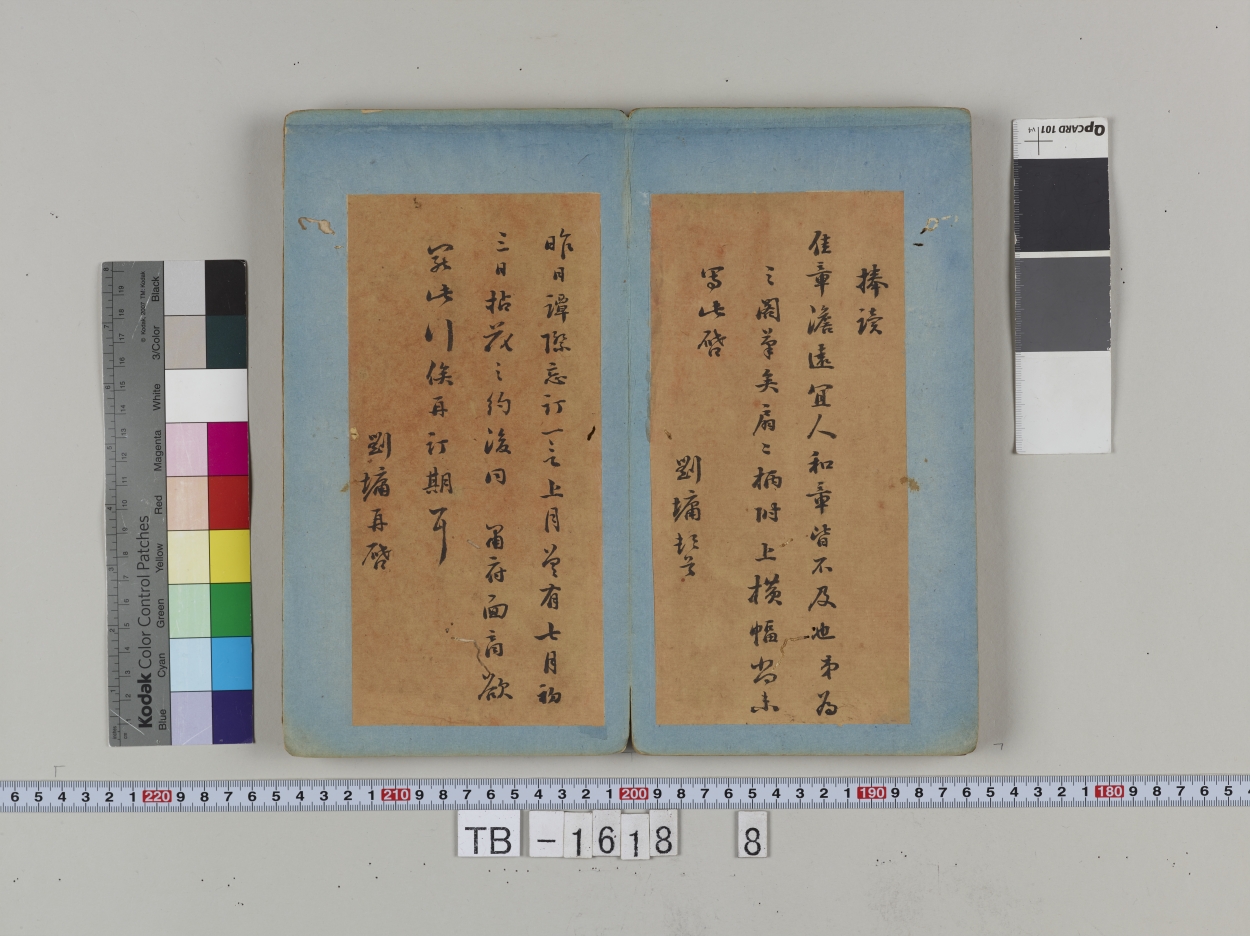 捧讀
佳章澹遠宜人和章皆不及也弟為
之閣筆矣扇二柄附上橫幅尚未
寫此啓
劉墉頓首
昨日譚際忘訂一言上月曾有七月初
三日拈花之約後同 留府面商欲
罷此行俟再訂期耳
劉墉再啓
Kodak Color Control Patches
Blue Cyan Green Yellow Red Magenta White 3/Color Black
QPCARD 101
6 5 4 3 2 1 220 9 8 7 6 5 4 3 2 1 210 9 8 7 6 5 4 3 2 1 200 9 8 7 6 5 4 3 2 1 190 9 8 7 6 5 4 3 2 1 180 9 8 7 6 5
TB-1618 8